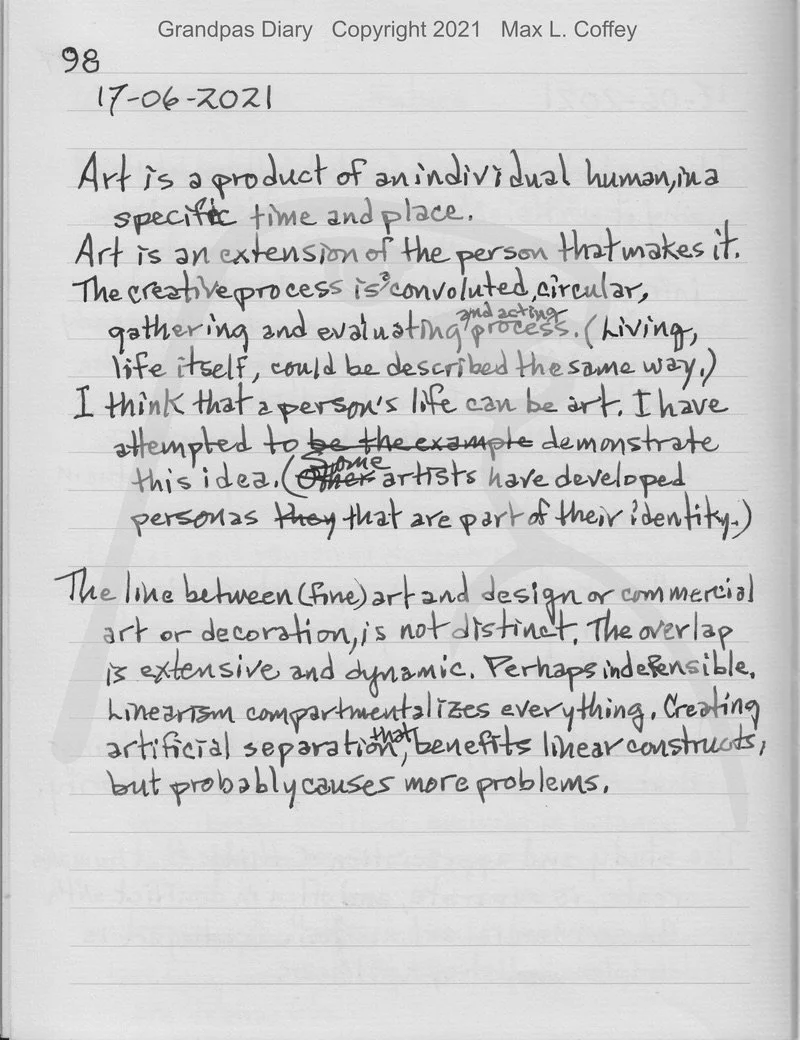 Grandpas Diary Copyright 2021 Max L. Coffey
98
17-06-2021
Art is a product of an individual human, in a
specific time and place.
Art is an extension of the person that makes it.
The creative process is a convoluted, circular,
gathering and evaluating and acting process. (Living,
life itself, could be described the same way.)
I think that a person's life can be art. I have
attempted to be the example demonstrate
this idea. (Other Some artists have developed
personas they that are part of their identity.)
The line between (fine) art and design or commercial
art or decoration, is not distinct. The overlap
is extensive and dynamic. Perhaps indefensible.
Linearism compartmentalizes everything. Creating
artificial separation, that benefits linear constructs,
but probably causes more problems.